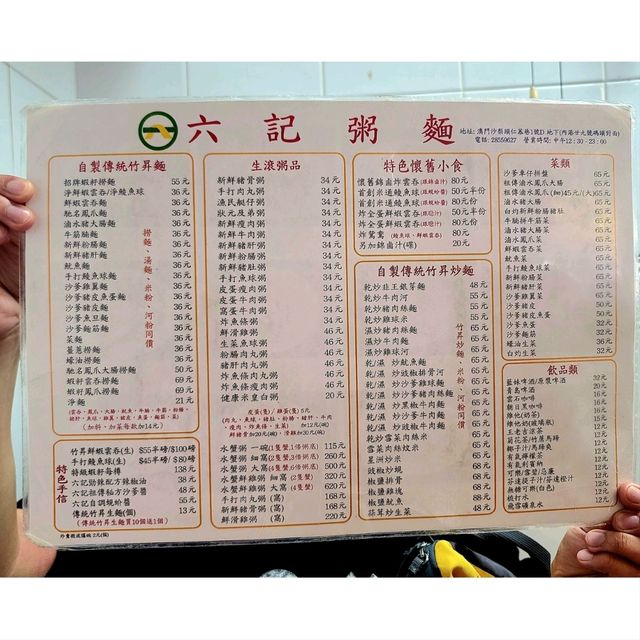 六記粥麵
地址: 澳門沙梨頭仁慕巷1號D 地下(內港廿九號碼頭對面)
電話: 28559627 營業時間: 中午12:30 - 23:00
自製傳統竹昇麵
招牌蝦籽撈麵 55元
淨鮮蝦雲吞/淨鯪魚球 36元
鮮蝦雲吞麵 36元
馳名鳳爪麵 36元
滷水豬大腸麵 36元
牛筋腩麵 36元
新鮮粉腸麵 36元
新鮮豬肝麵 36元
魷魚麵 36元
手打鯪魚球麵 36元
沙爹雞翼麵 36元
沙爹豬皮魚蛋麵 36元
沙爹豬皮麵 36元
沙爹魚旦麵 36元
沙爹麵筋麵 36元
菜麵 36元
薑蔥撈麵 36元
蠔油撈麵 36元
馳名鳳爪大腸撈麵 50元
蝦籽雲吞撈麵 69元
蝦籽鳳爪撈麵 69元
淨麵 21元
撈麵、湯麵、米粉、河粉同價
(加料，加菜每款加14元)
特色手信
竹昇鮮蝦雲吞(生) $55半磅/$100磅
手打鯪魚球(生) $45半磅/$80磅
特級蝦籽每樽 138元
六記勁辣配方辣椒油 38元
六記祖傳秘方沙爹醬 48元
六記自調蜆蚧醬 55元
傳統竹昇生麵(個) 13元
(傳統竹昇生麵買10個送1個)
外賣飯盒膠碗 2元(個)
生滾粥品
新鮮豬骨粥 34元
手打肉丸粥 34元
漁民艇仔粥 34元
狀元及弟粥 34元
新鮮瘦肉粥 34元
新鮮牛肉粥 34元
新鮮粉腸粥 34元
新鮮豬肝粥 34元
新鮮豬肚粥 34元
手打鯪魚球粥 34元
皮蛋瘦肉粥 34元
皮蛋牛肉粥 34元
窩蛋牛肉粥 34元
炸魚條粥 46元
鮮滑雞粥 46元
生菜魚球粥 46元
粉腸肉丸粥 46元
豬肝肉丸粥 46元
炸魚條肉丸粥 46元
炸魚條瘦肉粥 46元
健康米皇白粥 20元
皮蛋(隻) / 鹹蛋(隻) 5元
水蟹粥 一碗(1隻蟹,1條粥底) 115元
水蟹粥 細窩(2隻蟹,3條粥底) 260元
水蟹粥 大窩(4隻蟹,6條粥底) 500元
水蟹鮮雞粥 細窩(2隻蟹) 320元
水蟹鮮雞粥 大窩(4隻蟹) 620元
手打肉丸粥 (窩) 168元
新鮮豬骨粥 (窩) 168元
鮮滑雞粥 (窩) 220元
特色懷舊小食
懷舊錦鹵炸雲吞(跟錦鹵汁) 80元
首創米通鯪魚球(跟蜆蚧醬) 50元半份
首創米通鯪魚球(跟蜆蚧醬) 80元
炸全蛋鮮蝦雲吞 50元半份
炸全蛋鮮蝦雲吞 80元
炸鴛鴦 (鯪魚球、鮮蝦雲吞) 80元
另加錦鹵汁(喋) 20元
自製傳統竹昇炒麵
乾炒豉王銀芽麵 48元
乾炒牛肉河 55元
乾炒豬肉絲麵 55元
乾炒雞球米 55元
濕炒豬肉絲麵 65元
濕炒牛肉麵 65元
濕炒雞球河 65元
乾/濕 炒魷魚麵 65元
乾/濕 炒豉椒排骨河 65元
乾/濕 炒沙爹雞球麵 65元
乾/濕 炒沙爹豬肉絲麵 65元
乾/濕 炒沙爹牛肉麵 65元
乾/濕 炒黑椒牛肉麵 65元
乾/濕 炒豉椒牛肉麵 65元
乾炒雪菜肉絲米 65元
雪菜肉絲炆米 65元
星洲炒米 65元
豉椒炒蜆 68元
椒鹽排骨 68元
椒鹽雞塊 88元
椒鹽魷魚 88元
蒜茸炒生菜 48元
竹昇炒麵、米粉、河粉同價
菜類
沙爹牛仔拼盤 65元
祖傳滷水鳳爪大腸 65元
祖傳滷水鳳爪 (細)45元/(大)65元
滷水豬大腸 65元
白灼新鮮粉腸豬肚 65元
牛腩拼牛筋菜 65元
滷水豬大腸菜 65元
滷水鳳爪菜 65元
新鮮牛肉菜 65元
魷魚菜 65元
手打鯪魚球菜 65元
新鮮粉腸菜 65元
新鮮豬肝菜 65元
沙爹雞翼菜 65元
沙爹豬皮 50元
沙爹豬皮魚蛋 50元
沙爹魚蛋 32元
沙爹麵筋 32元
蠔油生菜 32元
白灼生菜 32元
飲品類
藍妹啤酒/原漿啤酒 32元
青島啤酒 20元
雲石咖啡 16元
朝日黑咖啡 16元
維他(奶茶) 16元
維他奶(玻璃瓶) 16元
王老吉涼茶 12元
菊花茶/竹蔗馬蹄 12元
椰子汁/馬蹄爽 12元
有氣檸檬茶 12元
有能利賓納 12元
可樂/雪碧/忌廉 12元
芬達提子汁/芬達橙汁 12元
無糖可樂(白色) 12元
桃汁水 12元
飛雪礦泉水 12元